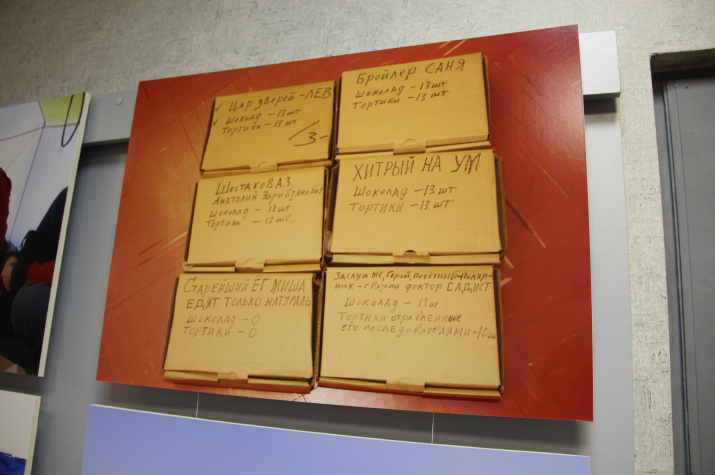 ЦАР ДВЕРЕЙ - ЛЕВ
ШОКОЛАД - 13 ШТ
ТОРТИКИ - 13 ШТ
/3-
БРОЙЛЕР САНЯ
ШОКОЛАД - 13 ШТ
ТОРТИКИ - 13 ШТ
ШЕСТАКОВ А.З.
АНАТОЛИЙ
ШОКОЛАД - 13 ШТ
ТОРТИКИ - 13 ШТ
ХИТРЫЙ НА УМ
ШОКОЛАД - 13 ШТ
ТОРТИКИ - 13 ШТ
СТАРЕЙШИЙ ЕГ МИША
ЕДЯТ ТОЛЬКО НАТУРАЛЬ
ШОКОЛАД - 0
ТОРТИКИ - 0
ЗАСЛУЖ МС, ГЕРОЙ, ПОЧЁТНЫЙ-ПОЛЯР-
НИК - ДОКТОР САДИСТ
ШОКОЛАД - 13 Ш
ТОРТИКИ ОТРАВЛЕННЫЕ
ЕГО ПОСЛЕДОВАТЕЛЯМИ - 10 Ш